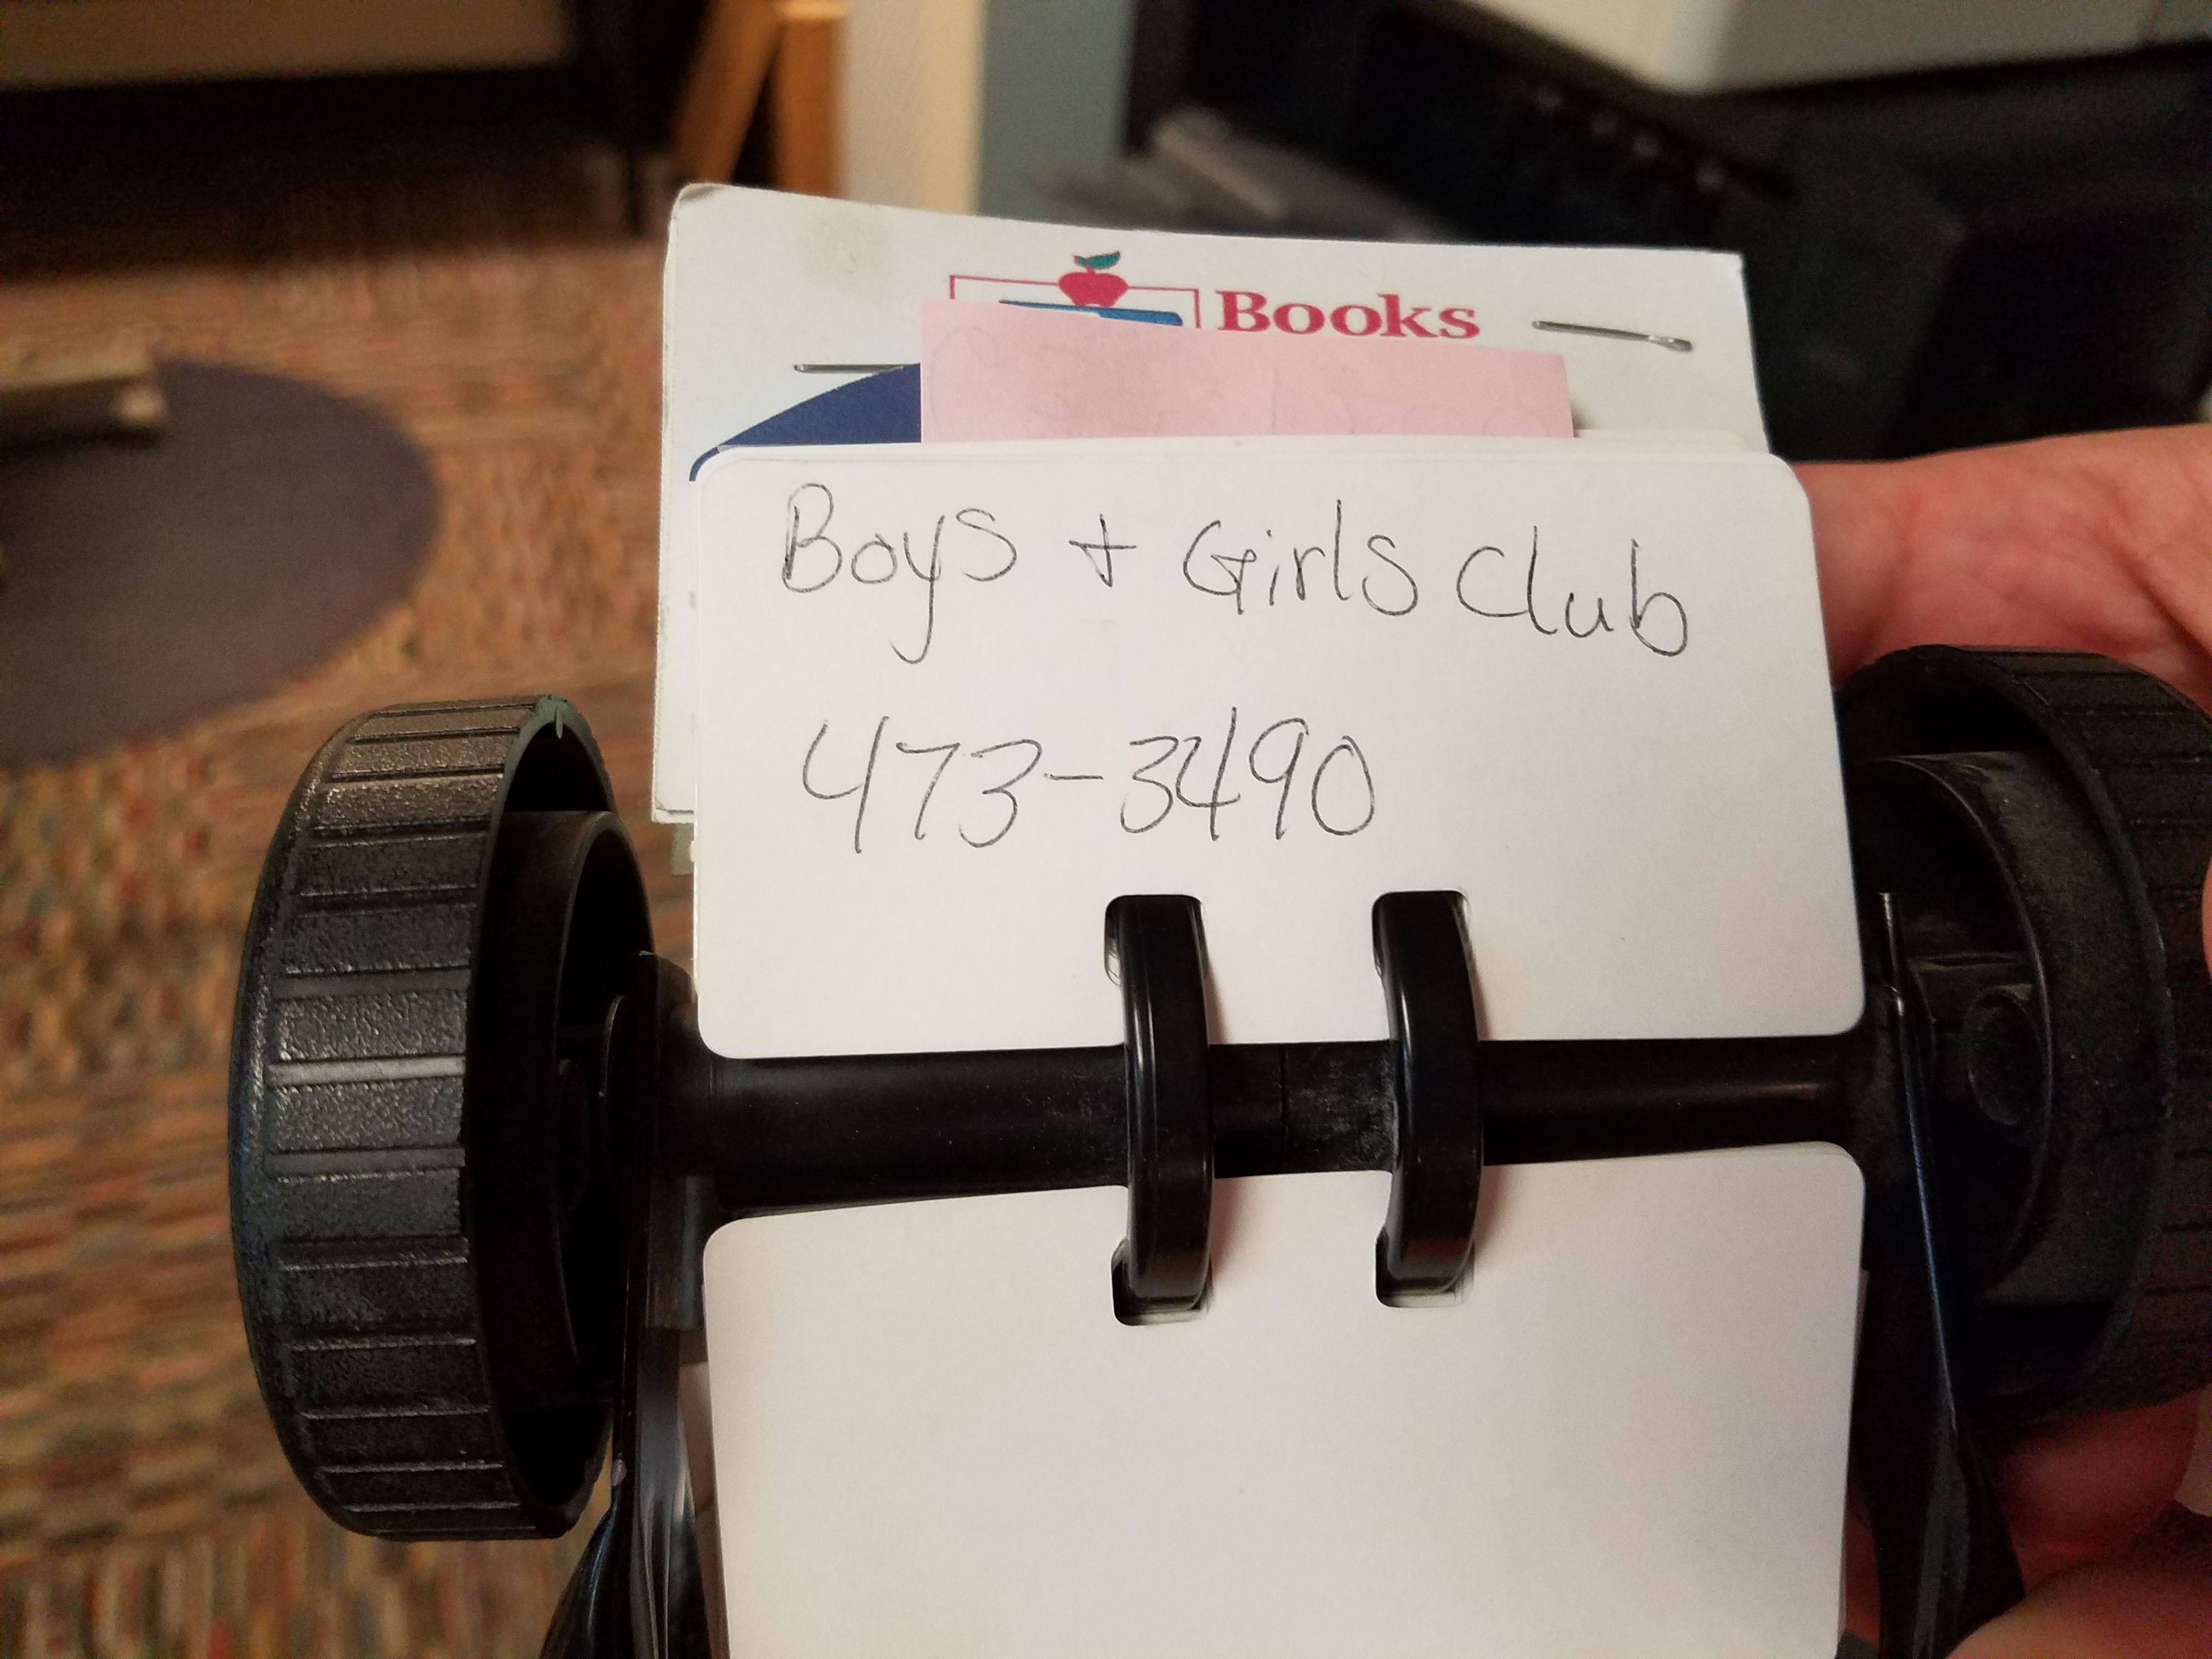 Books
Boys + Girls Club
473-3490